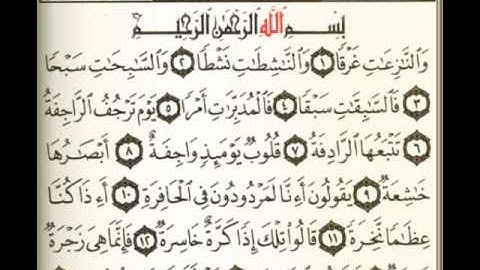 بِسْمِ اللَّهِ الرَّحْمَٰنِ الرَّحِيمِ
وَالنَّازِعَاتِ غَرْقًا ١ وَالنَّاشِطَاتِ نَشْطًا ٢ وَالسَّابِحَاتِ سَبْحًا
٣ فَالسَّابِقَاتِ سَبْقًا ٤ فَالْمُدَبِّرَاتِ أَمْرًا ٥ يَوْمَ تَرْجُفُ الرَّاجِفَةُ
٦ تَتْبَعُهَا الرَّادِفَةُ ٧ قُلُوبٌ يَوْمَئِذٍ وَاجِفَةٌ ٨ أَبْصَارُهَا
خَاشِعَةٌ ٩ يَقُولُونَ أَءِنَّا لَمَرْدُودُونَ فِي الْحَافِرَةِ ١٠ أَءِذَا كُنَّا
عِظَامًا نَخِرَةً ١١ قَالُوا تِلْكَ إِذًا كَرَّةٌ خَاسِرَةٌ ١٢ فَإِنَّمَا هِيَ زَجْرَةٌ